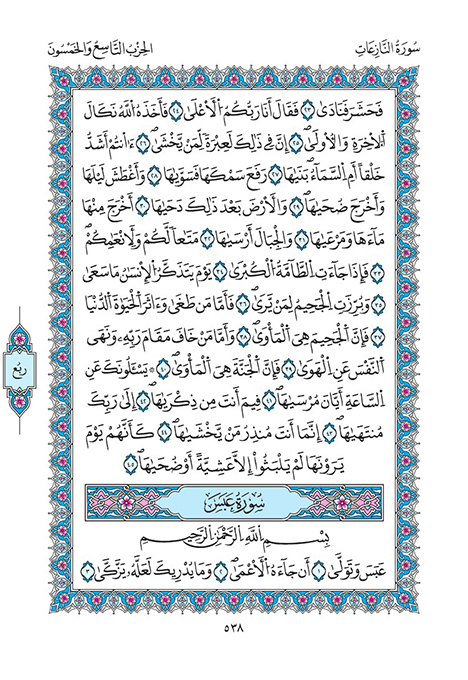 سُورَةُ النَّازِعَاتِ
الحِزْبُ التَّاسِعُ وَالخَمْسُونَ
فَحَشَرَ فَنَادَىٰ ٢٣ فَقَالَ أَنَا۠ رَبُّكُمُ ٱلْأَعْلَىٰ ٢٤ فَأَخَذَهُ ٱللَّهُ نَكَالَ
ٱلْأٓخِرَةِ وَٱلْأُولَىٰ ٢٥ إِنَّ فِي ذَٰلِكَ لَعِبْرَةً لِّمَن يَخْشَىٰ ٢٦ ءَأَنتُمْ أَشَدُّ
خَلْقًا أَمِ ٱلسَّمَآءُ بَنَىٰهَا ٢٧ رَفَعَ سَمْكَهَا فَسَوَّىٰهَا ٢٨ وَأَغْطَشَ لَيْلَهَا
وَأَخْرَجَ ضُحَىٰهَا ٢٩ وَٱلْأَرْضَ بَعْدَ ذَٰلِكَ دَحَىٰهَا ٣٠ أَخْرَجَ مِنْهَا
مَآءَهَا وَمَرْعَىٰهَا ٣١ وَٱلْجِبَالَ أَرْسَىٰهَا ٣٢ مَتَٰعًا لَّكُمْ وَلِأَنْعَٰمِكُمْ
٣٣ فَإِذَا جَآءَتِ ٱلطَّآمَّةُ ٱلْكُبْرَىٰ ٣٤ يَوْمَ يَتَذَكَّرُ ٱلْإِنسَٰنُ مَا سَعَىٰ
٣٥ وَبُرِّزَتِ ٱلْجَحِيمُ لِمَن يَرَىٰ ٣٦ فَأَمَّا مَن طَغَىٰ وَءَاثَرَ ٱلْحَيَوٰةَ ٱلدُّنْيَا
٣٧ فَإِنَّ ٱلْجَحِيمَ هِيَ ٱلْمَأْوَىٰ ٣٨ وَأَمَّا مَنْ خَافَ مَقَامَ رَبِّهِۦ وَنَهَى
ٱلنَّفْسَ عَنِ ٱلْهَوَىٰ ٣٩ فَإِنَّ ٱلْجَنَّةَ هِيَ ٱلْمَأْوَىٰ ٤٠ يَسْـَٔلُونَكَ عَنِ
ٱلسَّاعَةِ أَيَّانَ مُرْسَىٰهَا ٤١ فِيمَ أَنتَ مِن ذِكْرَىٰهَا ٤٢ إِلَىٰ رَبِّكَ
مُنتَهَىٰهَا ٤٣ إِنَّمَآ أَنتَ مُنذِرُ مَن يَخْشَىٰهَا ٤٤ كَأَنَّهُمْ يَوْمَ
يَرَوْنَهَا لَمْ يَلْبَثُوٓا۟ إِلَّا عَشِيَّةً أَوْ ضُحَىٰهَا ٤٥
رُبُع
سُورَةُ عَبَسَ
بِسْمِ ٱللَّهِ ٱلرَّحْمَٰنِ ٱلرَّحِيمِ
عَبَسَ وَتَوَلَّىٰٓ ١ أَن جَآءَهُ ٱلْأَعْمَىٰ ٢ وَمَا يُدْرِيكَ لَعَلَّهُۥ يَزَّكَّىٰٓ ٣
٥٣٨